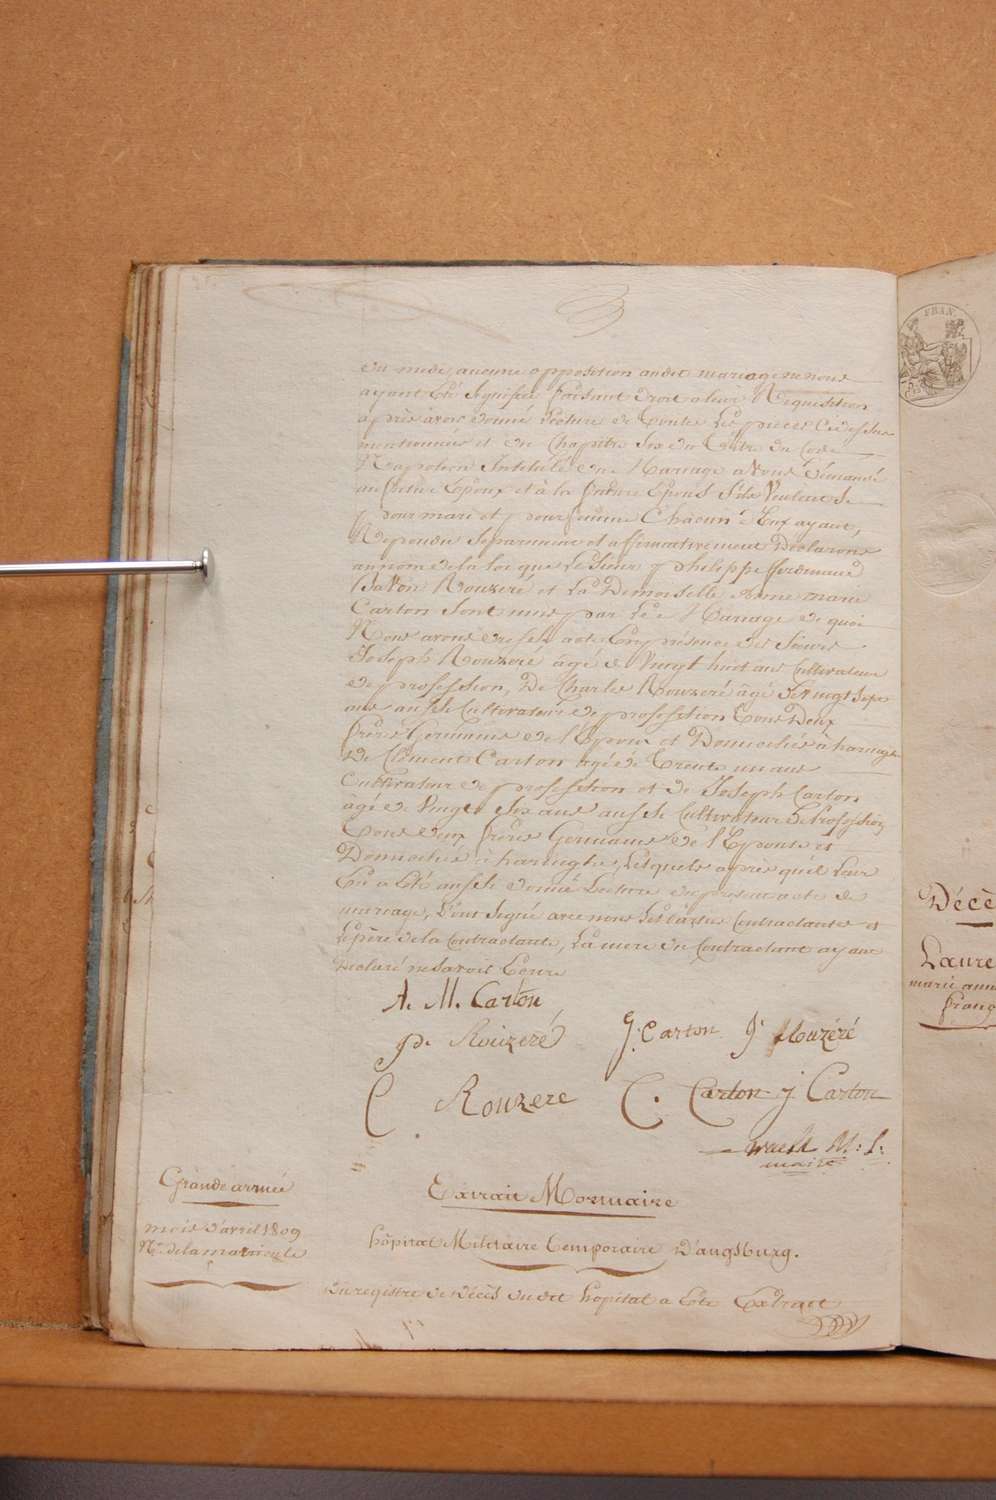 du midi, aucune opposition audit mariage ne nous
ayant Eté Signifiée faisant droit a leur Requisition
après avoir donné Lecture de toutes Les pieces Cidessus
mentionnées et du Chapitre Six du Titre du Code
Napoleon Intitulé du Mariage avons Demandé
au futur Epoux et à la future Epouse S'ils Veulent Se
pour mari et pour femme Chacun d'Eux ayant
Repondu Separement et affirmativement Declarons
au nom de la loi que Le Sieur philippe ferdinand
Rouzeré et La Demoiselle Anne marie
Carton Sont unis par Le Mariage de quoi
Nous avons dressé acte En présence des Sieurs
Joseph Rouzeré âgé de Vingt huit ans Cultivateur
de profession, De Charles Rouzeré âgé de Vingt Sept
ans aussi Cultivateur de profession tous Deux
frères Germains de l'Epoux et Domiciliés à haringhe
De Clément Carton âgé de trente un ans
Cultivateur de profession et de Joseph Carton
agé de Vingt Six ans aussi Cultivateur de Profession
tous deux frères Germains de l'Epouse et
Domiciliés à haringhe, Lesquels après qu'il Leur
En a Eté aussi donné Lecture du present acte de
mariage, L'ont Signé avec nous Les parties Contractantes et
Le père de la Contractante, La mere du Contractant ayant
Declaré ne Savoir Ecrire
A. M. Carton
p. Rouzeré J. Carton J. Rouzéré
C Rouzere C. Carton j Carton
maire
Grande armée
Extrait Mortuaire
mois d'avril 1809
No. de la matricule
hôpital Militaire temporaire D'augsburg.
Du registre de Décès du dit hopital a Eté Extrait
FRAN.
Décè
Laure
marie ann
franç